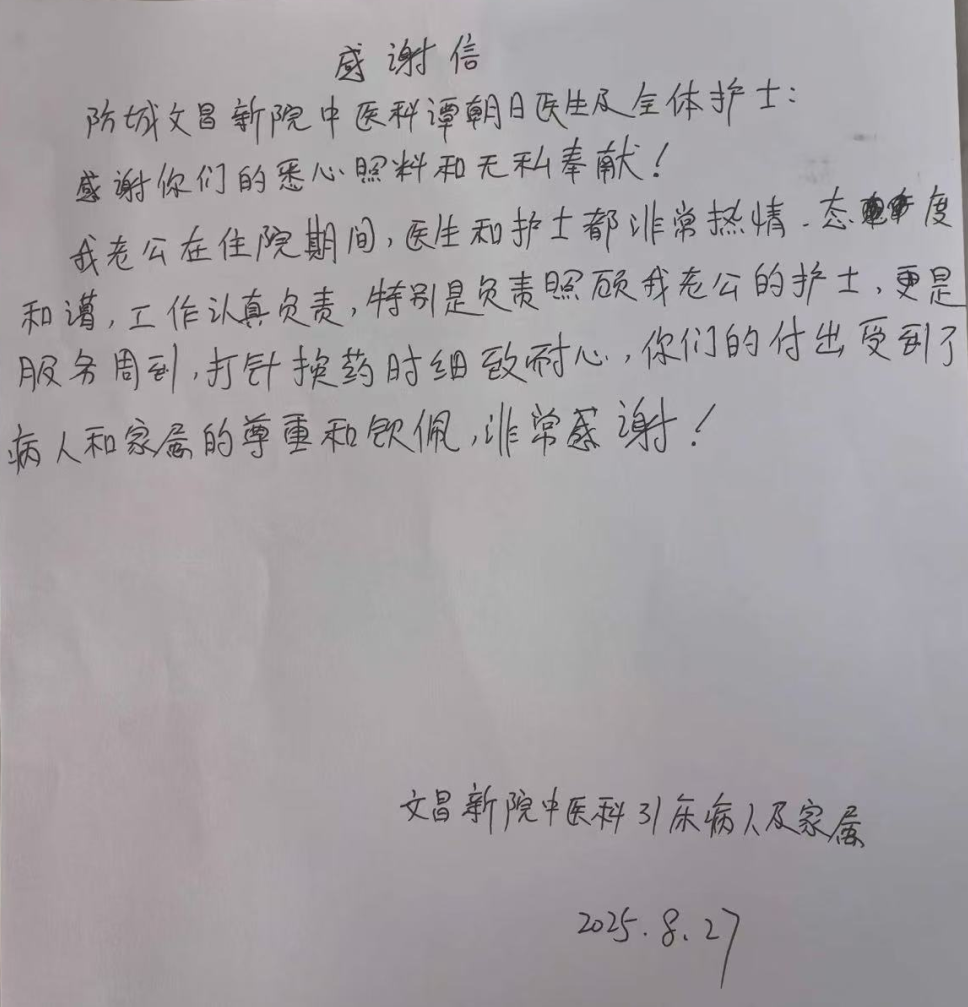 感谢信
防城文昌新院中医科谭朝日医生及全体护士：
感谢你们的悉心照料和无私奉献！
我老公在住院期间，医生和护士都非常热情、态度
和谱，工作认真负责，特别是负责照顾我老公的护士，更是
服务周到，打针换药时细致耐心，你们的付出受到了
病人和家属的尊重和钦佩，非常感谢！
文昌新院中医科31床病人及家属
2025.8.27